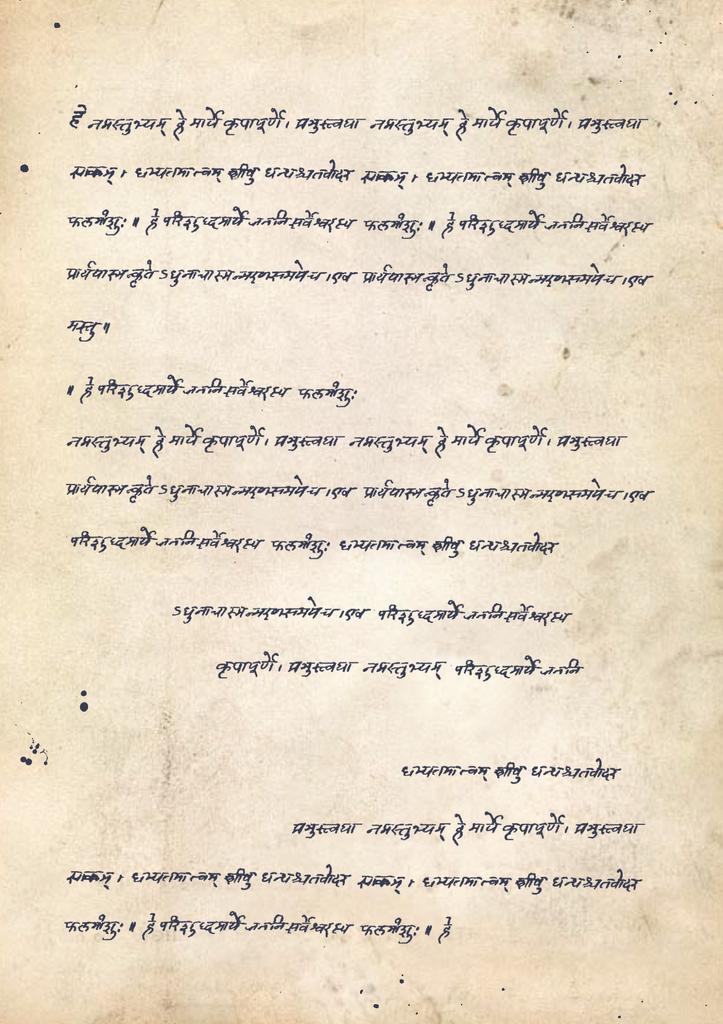 हे नमस्तुभ्यम् हे मार्ये कृपापूर्णे। प्रभुस्त्वया नमस्तुभ्यम् हे मार्ये कृपापूर्णे। प्रभुस्त्वया
साकम्। धन्यतमा त्वम् स्त्रीषु धन्यश्चतवोदर साकम्। धन्यतमा त्वम् स्त्रीषु धन्यश्चतवोदर
फलमीशुः॥ हे परिशुध्दमार्ये जननि सर्वेश्वरस्य फलमीशुः॥ हे परिशुध्दमार्ये जननि सर्वेश्वरस्य
प्रार्थयास्मत्कृते ऽधुनाचास्मन्मरणसमयेच।एव प्रार्थयास्मत्कृते ऽधुनाचास्मन्मरणसमयेच।एव
मस्तु॥
॥ हे परिशुध्दमार्ये जननि सर्वेश्वरस्य फलमीशुः
नमस्तुभ्यम् हे मार्ये कृपापूर्णे। प्रभुस्त्वया नमस्तुभ्यम् हे मार्ये कृपापूर्णे। प्रभुस्त्वया
प्रार्थयास्मत्कृते ऽधुनाचास्मन्मरणसमयेच।एव प्रार्थयास्मत्कृते ऽधुनाचास्मन्मरणसमयेच।एव
परिशुध्दमार्ये जननि सर्वेश्वरस्य फलमीशुः धन्यतमा त्वम् स्त्रीषु धन्यश्चतवोदर
ऽधुनाचास्मन्मरणसमयेच।एव परिशुध्दमार्ये जननि सर्वेश्वरस्य
कृपापूर्णे। प्रभुस्त्वया नमस्तुभ्यम् परिशुध्दमार्ये जननि
धन्यतमा त्वम् स्त्रीषु धन्यश्चतवोदर
प्रभुस्त्वया नमस्तुभ्यम् हे मार्ये कृपापूर्णे। प्रभुस्त्वया
साकम्। धन्यतमा त्वम् स्त्रीषु धन्यश्चतवोदर साकम्। धन्यतमा त्वम् स्त्रीषु धन्यश्चतवोदर
फलमीशुः॥ हे परिशुध्दमार्ये जननि सर्वेश्वरस्य फलमीशुः॥ हे